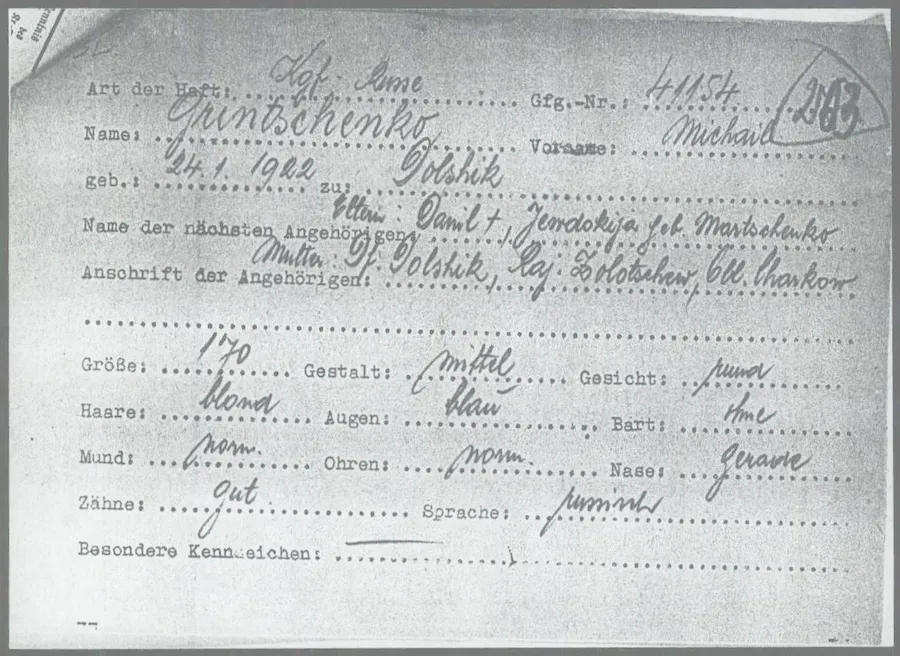 Art der Haft: Kgf. Russe Gfg.-Nr.: 41154
Name: Grintschenko Vorname: Michail
geb.: 24.1.1922 zu: Dolshik
Name der nächsten Angehörigen: Eltern: Danil +, Jewdokija geb. Martschenko
Anschrift der Angehörigen: Mutter: Df. Dolshik, Raj. Zolotschew, Obl. Charkow
Größe: 170 Gestalt: mittel Gesicht: rund
Haare: blond Augen: blau Bart: ohne
Mund: norm. Ohren: norm. Nase: gerade
Zähne: gut Sprache: russisch
Besondere Kennzeichen: —